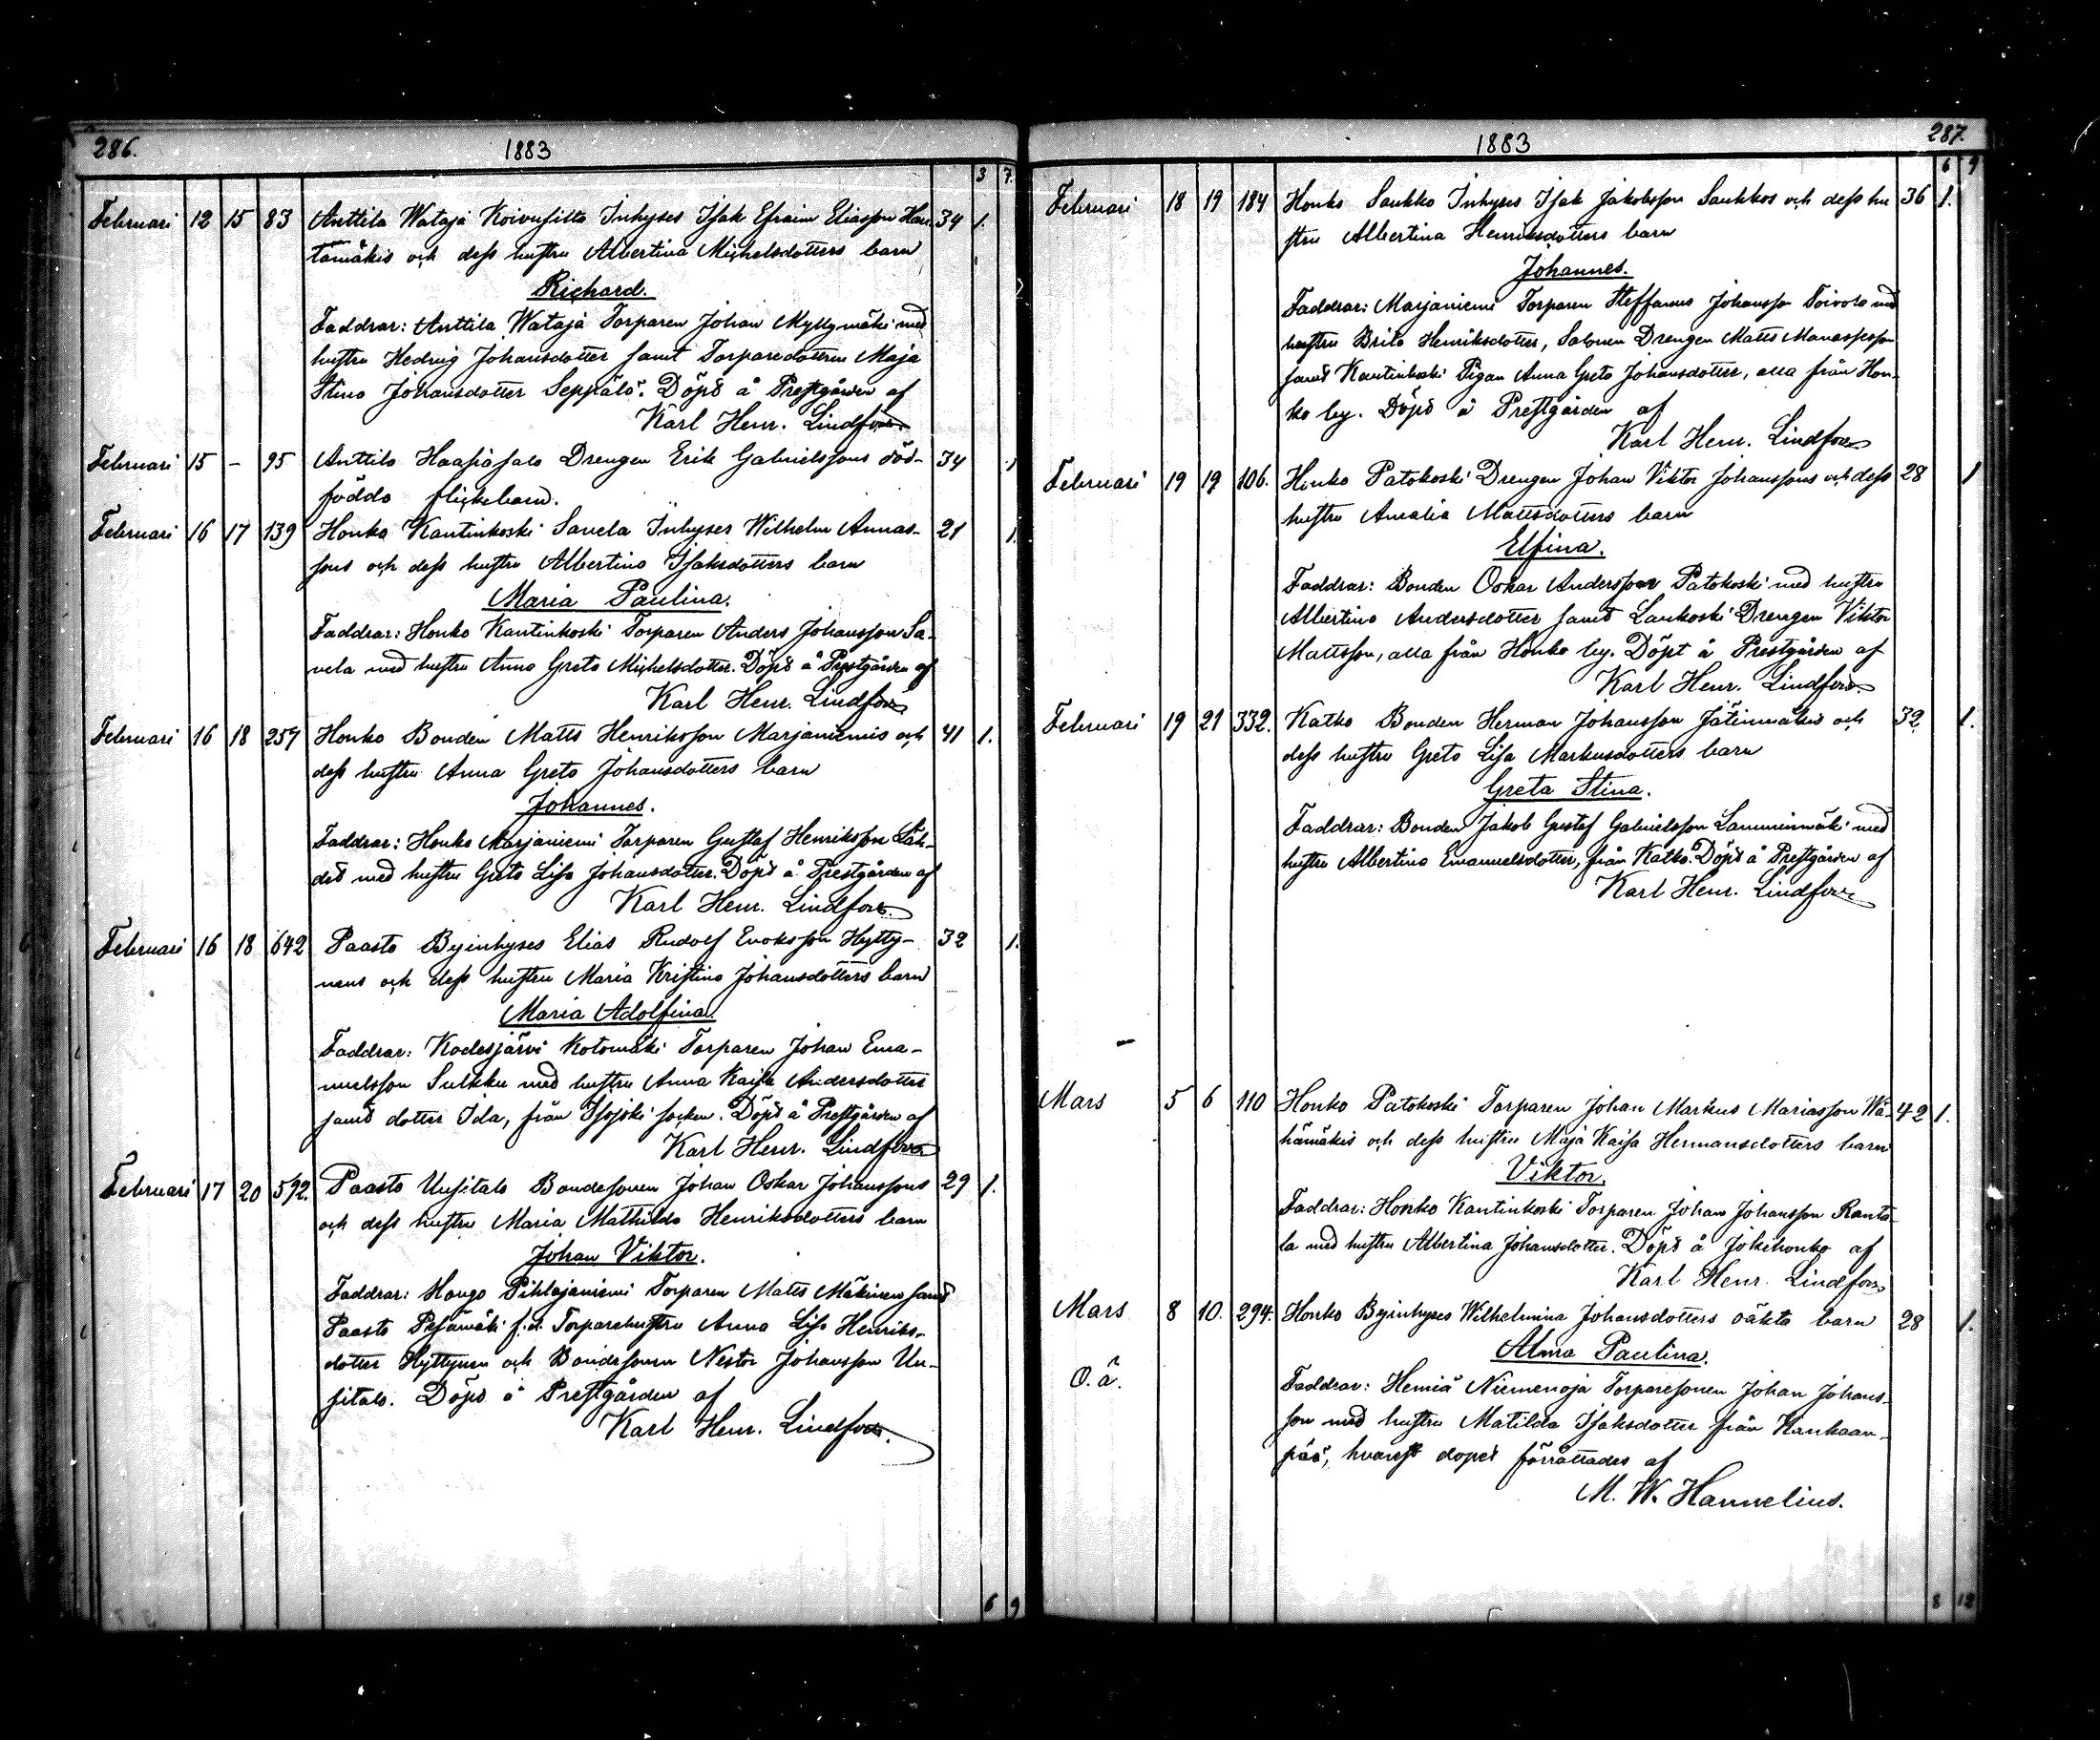 286.
1883
3 7.
Februari 12 15 83 Anttila Wataja Koivusilta Inhyses Isak Efraim Eliasson Han- 34 1.
tamäkis och dess hustru Albertina Michelsdotters barn
Richard.
Faddrar: Anttila Wataja Torparen Johan Myllymäki med
hustru Hedvig Johansdotter samt Torparedottren Maja
Stina Johansdotter Seppälä. Döpt å Prestgården af
Karl Henr. Lindfors
Februari 15 - 95 Anttila Haapasalo Drengen Erik Gabrielssons död- 34 1
födda flickebarn.
Februari 16 17 139 Honko Kantinkoski Savela Inhyses Wilhelm Annas- 21 1.
sons och dess hustru Albertina Isaksdotters barn
Maria Paulina.
Faddrar: Honko Kantinkoski Torparen Anders Johansson Sa-
vela med hustru Anna Greta Michelsdotter. Döpt å Prestgården af
Karl Henr. Lindfors
Februari 16 18 259 Honko Bonden Matts Henriksson Marjaniemis och 41 1.
dess hustru Anna Greta Johansdotters barn
Johannes.
Faddrar: Honko Marjaniemi Torparen Gustaf Henriksson Läh-
det med hustru Greta Lisa Johansdotter. Döpt å Prestgården af
Karl Henr. Lindfors.
Februari 16 18 642 Paasto Byinhyses Elias Rudolf Enoksson Hytty- 32 1.
nens och dess hustru Maria Kristina Johansdotters barn
Maria Adolfina.
Faddrar: Kodesjärvi Kotomäki Torparen Johan Ema-
nuelsson Sulkku med hustru Anna Kaisa Andersdotter
samt dotter Ida, från Isojoki socken. Döpt å Prestgården af
Karl Henr. Lindfors
Februari 17 20 592. Paasto Uusitalo Bondesonen Johan Oskar Johanssons 29 1.
och dess hustru Maria Mathilda Henriksdotters barn
Johan Viktor.
Faddrar: Hongo Pihlajaniemi Torparen Matts Mäkinen samt
Paasto Pesämäki f.d. Torparehustru Anna Lisa Henriks-
dotter Hyttynen och Bondesonen Nestor Johansson Uu-
sitalo. Döpt å Prestgården af
Karl Henr. Lindfors.
6 9
287.
1883
6 9
Februari 18 19 184 Honko Saukko Inhyses Isak Jakobsson Saukkos och dess hu 36 1.
stru Albertina Henriksdotters barn
Johannes.
Faddrar: Marjaniemi Torparen Steffanus Johansson Toivola med
hustru Brita Henriksdotter, Salonen Drengen Matts Manassesson
samt Kantinkoski Pigan Anna Greta Johansdotter, alla från Hon-
ko by. Döpt å Prestgården af
Karl Henr. Lindfors
Februari 19 19 106. Honko Patokoski Drengen Johan Viktor Johanssons och dess 28 1
hustru Amalia Mattsdotters barn
Elfina.
Faddrar: Bonden Oskar Andersson Patokoski med hustru
Albertina Andersdotter samt Laukoski Drengen Viktor
Mattsson, alla från Honko by. Döpt å Prestgården af
Karl Henr. Lindfors.
Februari 19 21 332. Katko Bonden Herman Johansson Jätinmäkis och 32 1.
dess hustru Greta Lisa Markusdotters barn
Greta Stina.
Faddrar: Bonden Jakob Gustaf Gabrielsson Lamminmäki med
hustru Albertina Emanuelsdotter, från Katko. Döpt å Prestgården af
Karl Henr. Lindfors
Mars 5 6 110 Honko Patokoski Torparen Johan Markus Mariasson Wä- 42 1.
hämäkis och dess hustru Maja Kaisa Hermansdotters barn
Viktor.
Faddrar: Honko Kantinkoski Torparen Johan Johansson Ranta-
la med hustru Albertina Johansdotter. Döpt å Jokihonko af
Karl Henr. Lindfors
Mars 8 10. 294. Honko Byinhyses Wilhelmina Johansdotters oäkta barn 28 1.
Alma Paulina.
O.ä. Faddrar: Hemiä Niemenoja Torparesonen Johan Johans-
son med hustru Matilda Isaksdotter från Kankaan-
pää, hvarest dopet förrättades af
M. W. Hannelius.
8 12